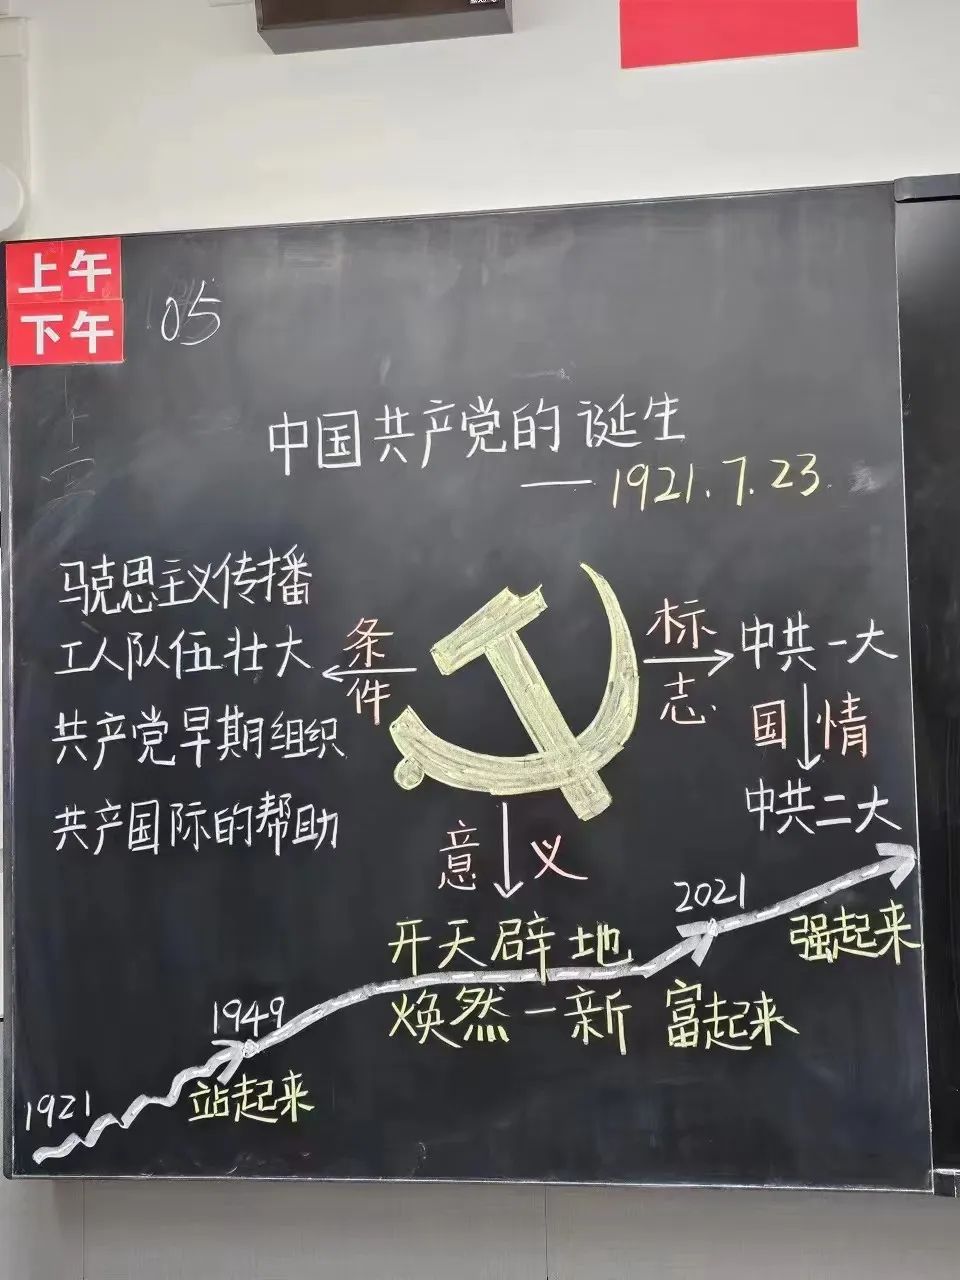 上午
下午
05
中国共产党的诞生
——1921.7.23
马克思主义传播
工人队伍壮大
共产党早期组织
共产国际的帮助
条件
标志
中共一大
国情
中共二大
意义
开天辟地
焕然一新
1921
1949
站起来
富起来
2021
强起来